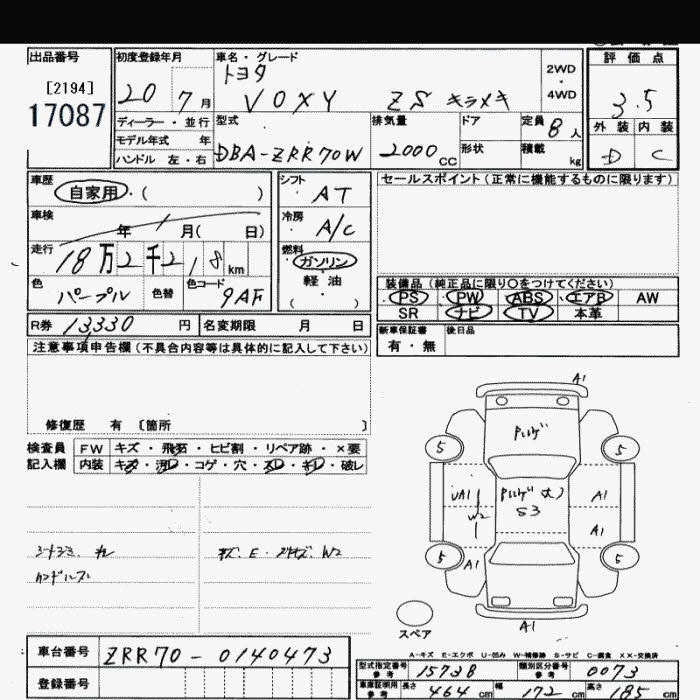 出品番号
[2194]
17087
初度登録年月
20 7月
ディーラー・並行
モデル年式 年
ハンドル 左・右
車名・グレード
トヨタ
VOXY ZS キラメキ
2WD
・
4WD
型式
DBA-ZRR70W
排気量
2000cc
ドア
形状
定員 8人
積載 kg
評価点
3.5
外装 内装
D C
車歴
自家用・( )
車検
年 月( 日)
走行
18万2千218km
色
パープル
色替
色コード
9AF
シフト
AT
冷房
A/C
燃料
ガソリン
・
軽油
( )
セールスポイント(正常に機能するものに限ります)
装備品(純正品に限り○をつけてください)
PS PW ABS エアB AW
SR ナビ TV 本革
新車保証書
有・無
後日品
R券 13330 円
名変期限 月 日
注意事項申告欄(不具合内容等は具体的に記入して下さい)
修復歴 有 〔箇所 〕
検査員
記入欄
FW キズ・飛石・ヒビ割・リペア跡・×要
内装 キズ・汚レ・コゲ・穴・スレ・キレ・破レ
キズ. E.
W2
ハンドルスレ
A1
5 5
UA1
W2
S3
A1
A1
5 5
A1
A1
スペア
A-キズ E-エクボ U-凹み W-補修跡 S-サビ C-腐食 XX-交換済
車台番号
ZRR70-0140473
登録番号
型式指定番号
参考
15738
類別区分番号
参考
0073
車庫証明用
参考
長さ 464cm
幅 172cm
高さ 185cm